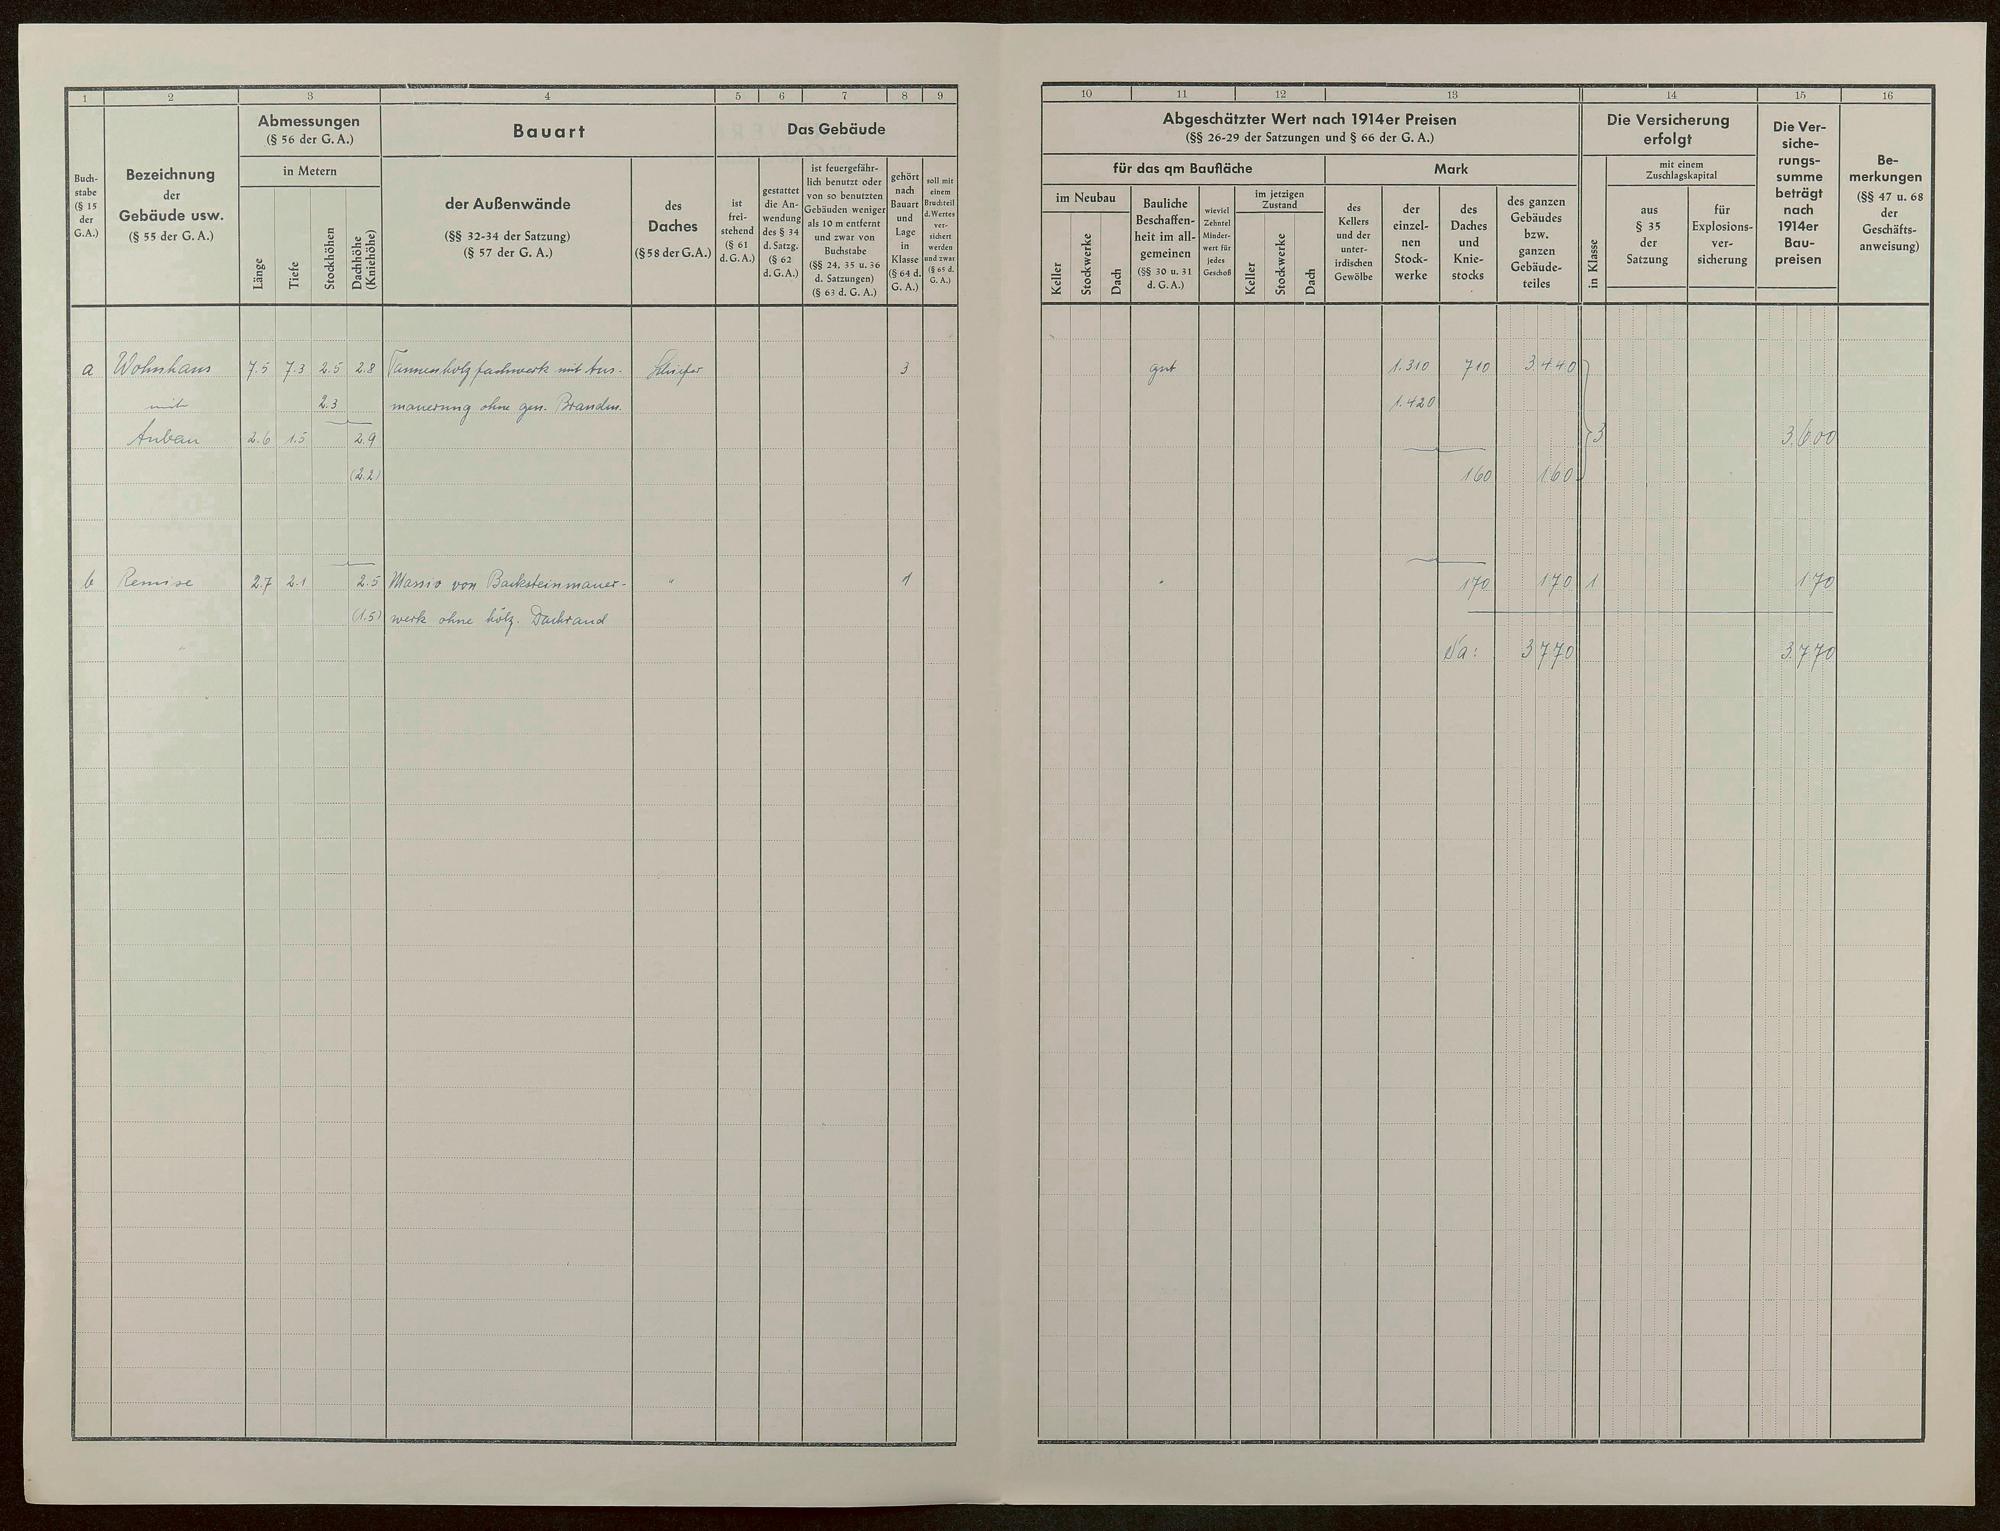 1 2 3 4 5 6 7 8 9
Buch-
stabe
(§ 15
der
G.A.)
Bezeichnung
der
Gebäude usw.
(§ 55 der G. A.)
Abmessungen
(§ 56 der G. A.)
in Metern
Länge
Tiefe
Stockhöhen
Dachhöhe
(Kniehöhe)
Bauart
der Außenwände
(§§ 32-34 der Satzung)
(§ 57 der G. A.)
des
Daches
(§ 58 der G.A.)
Das Gebäude
ist
frei-
stehend
(§ 61
d. G. A.)
gestattet
die An-
wendung
des § 34
d. Satzg.
(§ 62
d. G. A.)
ist feuergefähr-
lich benutzt oder
von so benutzten
Gebäuden weniger
als 10 m entfernt
und zwar von
Buchstabe
(§§ 24, 35 u. 36
d. Satzungen)
(§ 63 d. G. A.)
gehört
nach
Bauart
und
Lage
in
Klasse
(§ 64 d.
G. A.)
soll mit
einem
Bruchteil
d. Wertes
ver-
sichert
werden
und zwar
(§ 65 d.
G. A.)
a Wohnhaus 7.5 7.3 2.5 2.8 Tannenholzfachwerk mit Aus- Schiefer 3
mit 2.3 mauerung ohne gen. Brandm.
Anbau 2.6 1.5 2.9
(2.2)
b Remise 2.7 2.1 2.5 Massiv von Backsteinmauer- " 1
(1.5) werk ohne hölz. Dachrand
10 11 12 13 14 15 16
Abgeschätzter Wert nach 1914er Preisen
(§§ 26-29 der Satzungen und § 66 der G. A.)
für das qm Baufläche
Mark
im Neubau
Keller
Stockwerke
Dach
Bauliche
Beschaffen-
heit im all-
gemeinen
(§§ 30 u. 31
d. G. A.)
wieviel
Zehntel
Minder-
wert für
jedes
Geschoß
im jetzigen
Zustand
Keller
Stockwerke
Dach
des
Kellers
und der
unter-
irdischen
Gewölbe
der
einzel-
nen
Stock-
werke
des
Daches
und
Knie-
stocks
des ganzen
Gebäudes
bzw.
ganzen
Gebäude-
teiles
Die Versicherung
erfolgt
in Klasse
mit einem
Zuschlagskapital
aus
§ 35
der
Satzung
für
Explosions-
ver-
sicherung
Die Ver-
siche-
rungs-
summe
beträgt
nach
1914er
Bau-
preisen
Be-
merkungen
(§§ 47 u. 68
der
Geschäfts-
anweisung)
gut 1.310 710 3.440
1.420
3 3.600
160 160
" 170 170 1 170
Sa: 3770 3.770